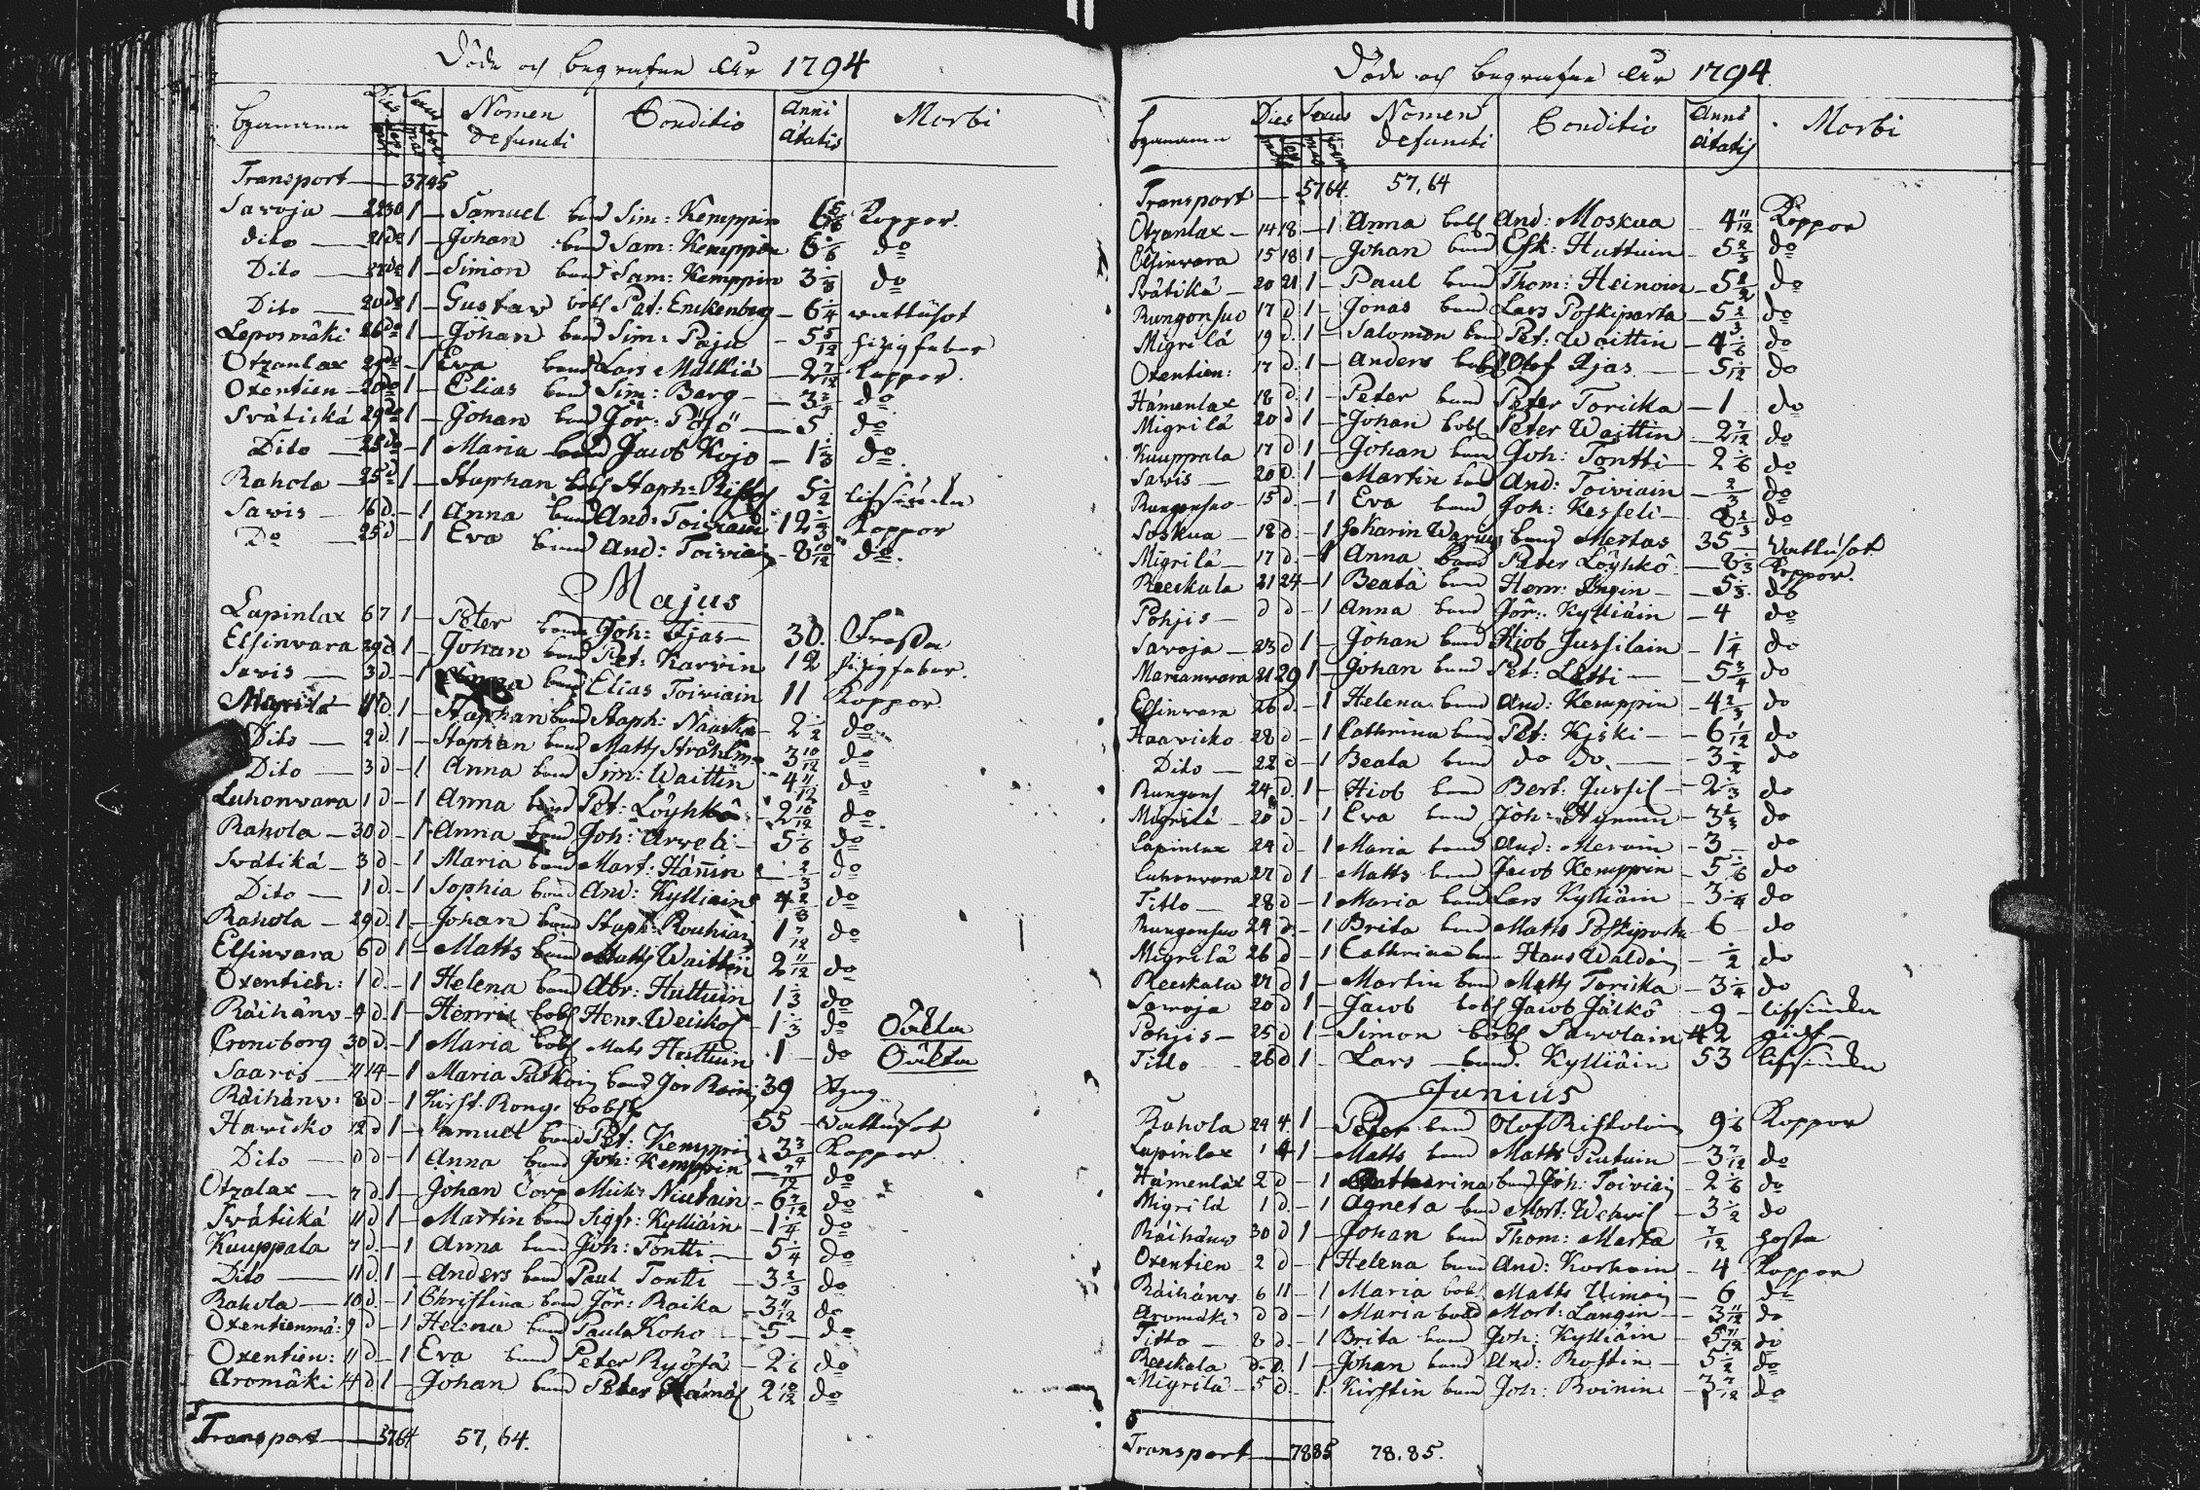 Döde och begrafne År 1794
Byarnamn Dies Sexus Nomen defuncti Conditio Anni ätatis Morbi
Transport — 3745
Savoja — 22 30 1 — Samuel bond Sim: Kemppin 6 5/6 Koppor.
dito — 21 do 1 — Johan bond Sam: Kemppin do
Dito — 22 do 1 — Simon bond Sam: Kemppin 3 do
Dito — 20 do 1 — Gustav bobs Pat: Enckenberg — 6 1/4 wattusot
Leposmäki 26 do 1 — Johan bond Sim: Paju — 5 5/12 hizigfeber
Otzanlax 29 do — 1 Eva bond Lars Matkiä — 2 7/12 Koppor.
Oxentien — 20 do 1 — Elias bond Sim: Barg — 3 do
Svätickä 29 do 1 — Johan bond Jör: — 5 do
Dito — 25 do — 1 Maria bond Jacob Kojo — 1 1/3 do
Rahola — 25 d 1 — Staphan bobs Staph: 5 1/2 lifsiuka
Savis — 16 d — 1 Anna bond And: Toiviain 12 1/3 Koppor
Do — 25 d — 1 Eva bond And: Toiviain — 8 10/12 do.
Majus
Lapinlax 6 7 1 — Peter bond Joh: Ijas — 30. Frossa
Elsinvara 29 d 1 — Johan bond Pet: Karvin 12 hizigfeber.
Savis — 3 d. — 1 bond Elias Toiviain 11 Koppor
Migrilä 1 d. 1 — Staphan bond Staph: 2 1/2 do
Dito — 2 d. 1 — Staphan bond Matts 3 10/12 do
Dito — 3 d — 1 Anna bond Sim: Waittin 4 11/12 do
Luhonvara 1 d — 1 Anna bond Pet: Löyhkö 2 10/12 do.
Rahola — 30 d — 1 Anna bond Joh: Arveli — 5 1/6 do
Svätikä — 3 d — 1 Maria bond Mart: Hännin 2/3 do
Dito — 1 d. — 1 Sophia bond And: Kylliain 4 2/3 do
Rahola — 29 d. 1 — Johan bond Staph: Rouhiai 1 7/12 do
Elsinvara 6 d 1 — Matts bond Matts Waittin 2 11/12 do
Oxentien: 1 d. — 1 Helena bond Abr: Huttuin 1 1/3 do
Räihänv — 9 d. 1 — Henric bobs Henr: 1 1/3 do
Cronoborg 30 d. — 1 Maria bobs Mats Huttuin 1 — do
Saaris — 11 14 — 1 Maria bond Jör 39
Räihänv: 8 d — 1 Kirst. bobs 55 — wattusot
Havicko 12 d 1 — Samuel bond Pet: Kemppin 3 3/4 Koppor
Dito — d d — 1 Anna bond Joh: Kemppin — 7/12 do
Otzalax — 7 d. 1 — Johan Corp Mich: Niutain — 6 7/12 do
Svätickä 11 d 1 — Martin bond Sigfr: Kylliäin — 1 1/4 do
Kuuppala 7 d. — 1 Anna bond Joh: Tontti — 5 1/4 do
Dito — 11 d. 1 — Anders bond Paul Tontti — 3 2/3 do
Rahola — 10 d. — 1 Christina bond Jör: Raika — 3 11/12 do
Oxentienmä: 9 d — 1 Helena bond Paul Koho — 5 — do
Oxentien: 11 d — 1 Eva bond Peter Ryösä — 2 1/6 do
Aromäki 14 d 1 — Johan bond Peter 2 10/12 do
Transport — 5764 57,64.
Döde och begrafne År 1794.
Byarnamn Dies Sexus Nomen defuncti Conditio Anni ätatis Morbi
Transport — 5764. 57,64
Otzanlax — 14 18 — 1 Anna bobs And: Moskua — 4 11/12 Koppor
Elsinvara 15 18 1 — Johan bond Esk: Huttuin — 5 2/3 do
Svätikä — 20 21 1 — Paul bond Thom: Heinoin — 5 1/2 do
Rungonsuo 17 d 1 — Jonas bond Lars Poskiparta — 5 2/3 do
Migrilä 19 d. 1 — Salomon bond Pet: Waittin — 4 1/6 do
Oxentien: 17 d. 1 — Anders bobs Olof Ijas — 5 1/12 do
Hämenlax 18 d. 1 — Peter bond Peter Toricka — 1 do
Migrilä 20 d 1 — Johan bobs Peter Waittin — 2 7/12 do
Kuuppala 17 d 1 — Johan bond Joh: Tontti — 2 1/6 do
Savis — 20 d. 1 — Martin bond And: Toiviain — 2/3 do
Rungonsuo — 15 d — 1 Eva bond Joh: Kesseli — 8 2/3 do
Soskua — 18 d. — 1 Karin bond Mertas 35 — Wattusot
Migrilä — 17 d. — 1 Anna bond Peter Löyhkö — 8 1/3 Koppor.
Reeskala 21 24 — 1 Beata bond Henr: Ingin — 5 1/3 do
Pohjis — d d — 1 Anna bond Jör: Kylliäin — 4 do
Savoja — 23 d 1 — Johan bond Hiob Jussilain — 1 1/4 do
Marianvara 21 29 1 — Johan bond Pet: Letti — 5 3/4 do
Elsinvara 26 d. — 1 Helena bond And: Kemppin — 4 2/3 do
Haavicko 28 d — 1 Cathrina bond Pet: Kiski — 6 1/12 do
Dito — 22 d — 1 Beata bond do do. — 3 1/2 do
Rungons 24 d. 1 — Hiob bond Bert: Jussil — 2 1/3 do
Migrilä — 20 d — 1 Eva bond Joh: Hynnin — 3 2/3 do
Lapinlax 24 d — 1 Maria bond And: Mervin — 3 — do
Luhonvara 27 d 1 — Matts bond Jacob Kemppin — 5 1/6 do
Titlo — 28 d — 1 Maria bond Lars Kylliäin — 3 1/4 do
Rungonsuo 29 d — 1 Brita bond Matts Poskiparta 6 — do
Migrilä 26 d — 1 Cathrina bond Hans — 1/2 do
Reeskala 27 d 1 — Martin bond Matts Toricka — 3 1/4 do
Savoja 20 d 1 — Jacob bobs Jacob Jälkö — 9 — lifsiuka
Pohjis — 25 d 1 — Simon bobs Savolain 42
Titlo — 26 d 1 — Lars — bond. Kylliäin 53 lifsiuka
Junius
Rahola 29 4 1 — Peter bond Olof Ristolain 9 1/6 Koppor
Lapinlax 1 4 1 — Matts bond Matts Puutuin — 3 7/12 do
Hämenlax 2 d — 1 Catharina bond Joh: Toiviai — 2 1/6 do
Migrilä 1 d. — 1 Agneta bond Mort: — 3 1/2 do
Räihänv 30 d 1 — Johan bond Thom: Merta 7/12 hosta
Oxentien 2 d — 1 Helena bond And: Korhoin — 4 Koppor
Räihänv 6 11 — 1 Maria bobs Matts Uimoi — 6 do
Aromäki d d — 1 Maria bond Mort: Langin — 3 11/12 do
Titto — 8 d. — 1 Brita bond Joh: Kylliäin — 5 11/12 do
Reeskala d. d. 1 — Johan bond And: Rostin — 5 1/2 do
Migrilä — 5 d — 1. Kirstin bond Joh: Roinin — 3 7/12 do
Transport — 7885 78.85.